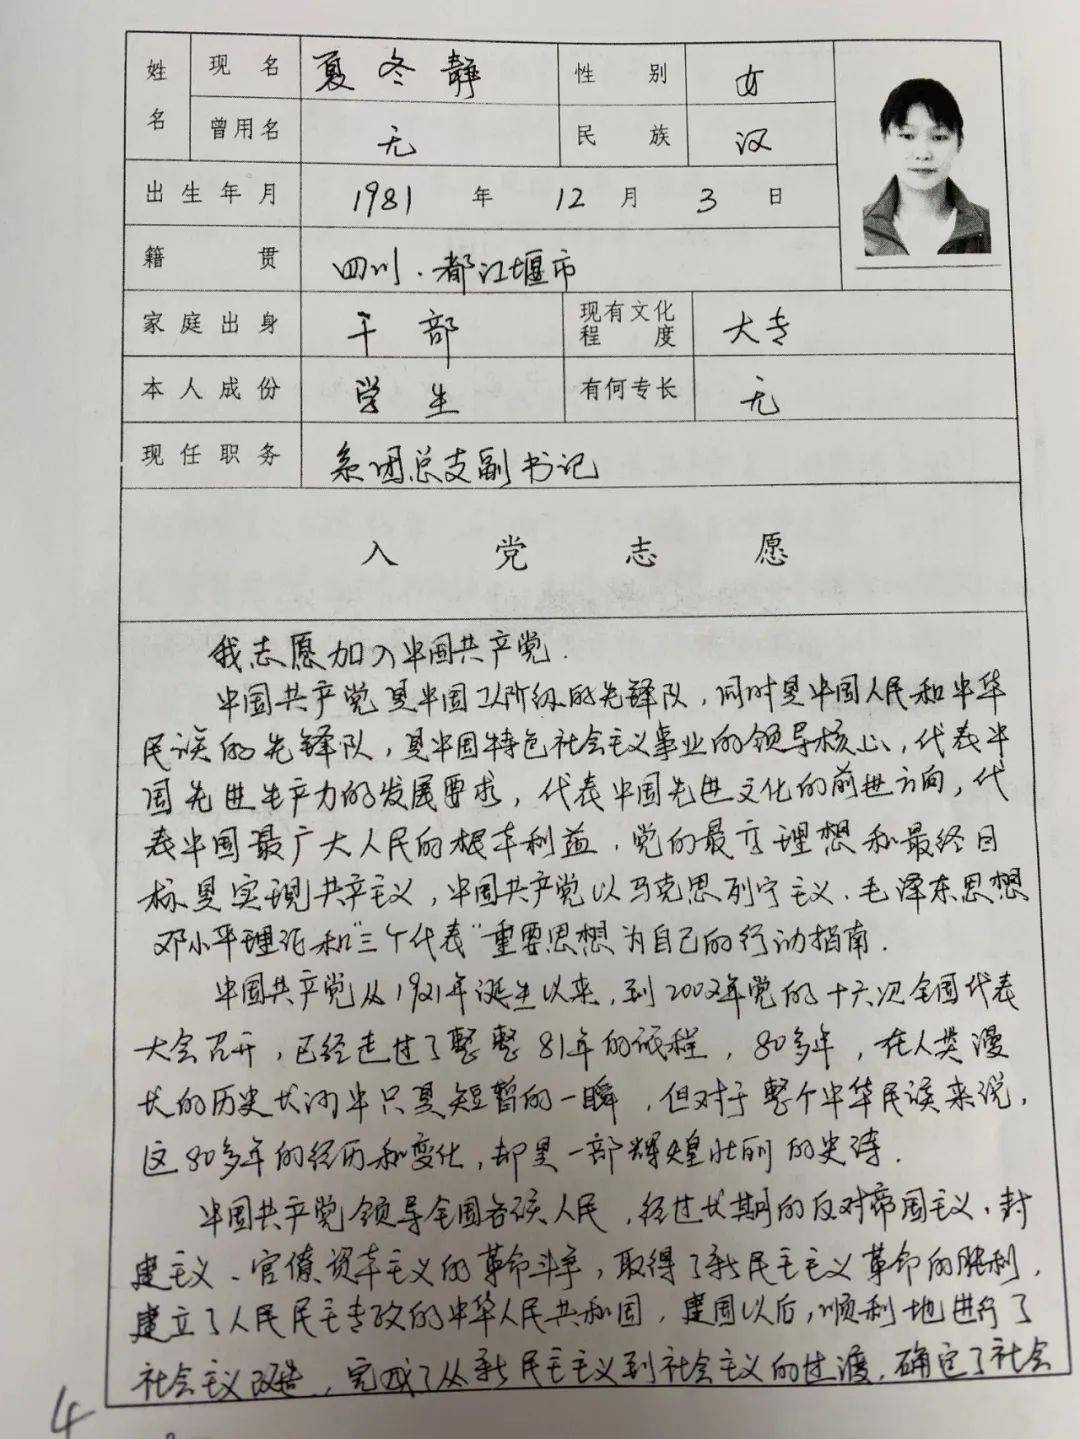 姓名 现名 夏冬静 性别 女
曾用名 无 民族 汉
出生年月 1981 年 12 月 3 日
籍贯 四川.都江堰市
家庭出身 干部 现有文化程度 大专
本人成份 学生 有何专长 无
现任职务 系团总支副书记
入党志愿
我志愿加入中国共产党.
中国共产党是中国工人阶级的先锋队,同时是中国人民和中华
民族的先锋队,是中国特色社会主义事业的领导核心,代表中
国先进生产力的发展要求,代表中国先进文化的前进方向,代
表中国最广大人民的根本利益.党的最高理想和最终目
标是实现共产主义,中国共产党以马克思列宁主义、毛泽东思想
邓小平理论和"三个代表"重要思想为自己的行动指南.
中国共产党从1921年诞生以来,到2002年党的十六次全国代表
大会召开,已经走过了整整81年的征程,80多年,在人类漫
长的历史长河中只是短暂的一瞬,但对于整个中华民族来说,
这80多年的经历和变化,却是一部辉煌壮丽的史诗.
中国共产党领导全国各族人民,经过长期的反对帝国主义、封
建主义、官僚资本主义的革命斗争,取得了新民主主义革命的胜利,
建立了人民民主专政的中华人民共和国,建国以后,顺利地进行了
社会主义改造,完成了从新民主主义到社会主义的过渡,确定了社会
4